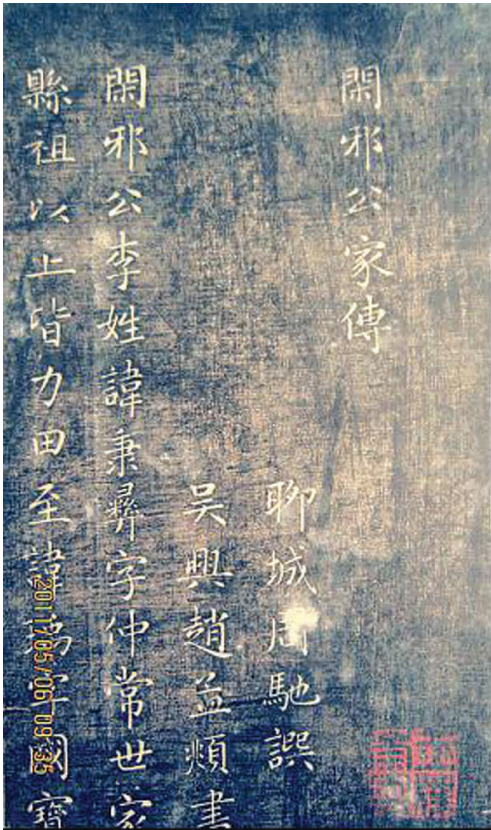 閑邪公家傳
聊城周馳譔
吴興趙孟頫書
閑邪公李姓諱秉彝字仲常世家
縣祖以上皆力田至諱 字國寶
2011/05/06 09:35